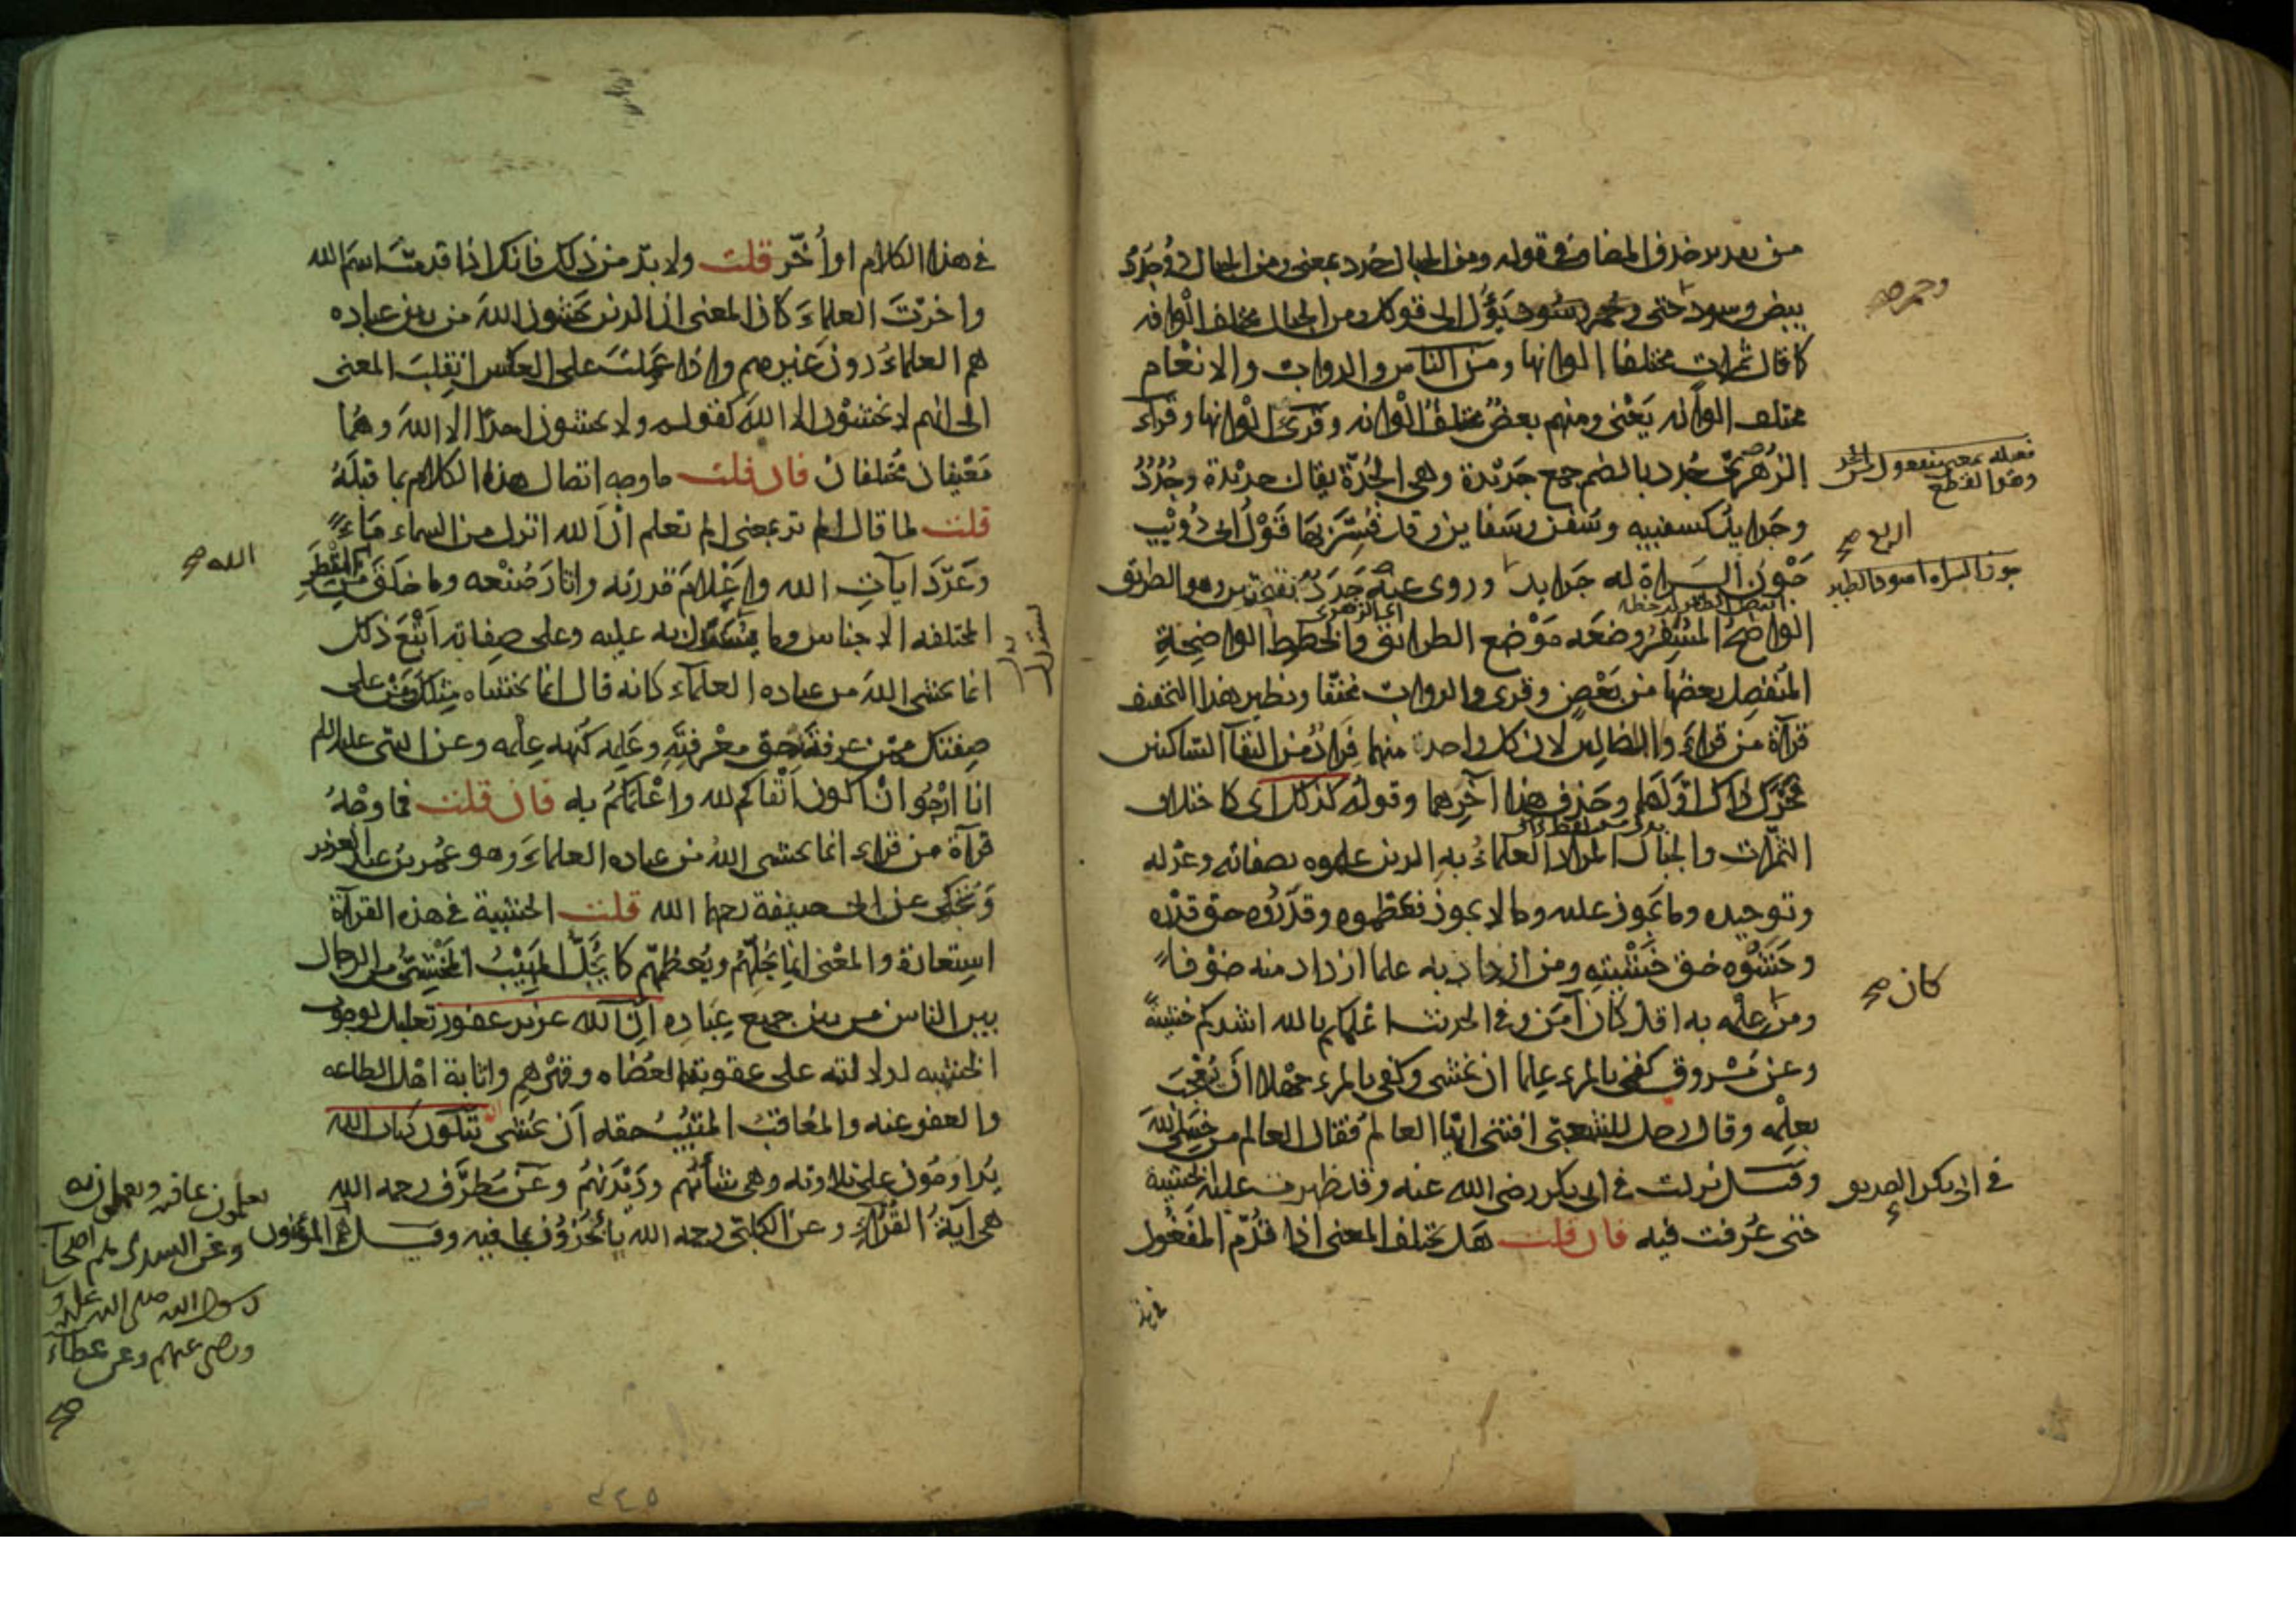 من تقدير حذف المضاف في قوله ومن الجبال جدد بمعنى ومن الجبال ذو جدد
بيض وسود حتى وحمر وسود يؤل الى قولك ومن الجبال مختلف الوانه
كما قال ثمرات مختلفا الوانها ومن الناس والدواب والانعام
مختلف الوانه يعنى ومنهم بعض مختلف الوانه وقرئ الوانها وقراء
الزهرى جدد بالضم جمع جديدة وهى الجدة يقال جديدة وجدد
وجدايد كسفينه وسفن وسفاين وقد فسر بها قول ابى ذويب
جون السراة له جدايد وروى عنه جدد بفتحتين وهو الطريق
الواضح المسفر وضعه موضع الطرايق والخطوط الواضحة
المنفصل بعضها من بعض وقرى والدواب مخففا ونظير هذا التخفيف
قرآة من قراء ولا الضالين لان كل واحد منهما فرار من التقآ الساكنين
فحرك ذاك اولهما وحذف هذا آخرهما وقوله كذلك اى كاختلاف
الثمرات والجبال المراد العلماء به الذين علموه بصفاته وعدله
وتوحيده وما يجوز عليه وما لا يجوز فعظموه وقدروه حق قدره
وخشوه حق خشيته ومن ازداد به علما ازداد منه خوفا
ومن علمه به اقل كان آمن وفي الحديث اعلمكم بالله اشدكم خشية
وعن مسروق كفى بالمرء علما ان يخشى وكفى بالمرء جهلا ان يعجب
بعلمه وقال رجل للشعبى افتنى ايها العالم فقال العالم من خشى الله
وقيل نزلت في ابى بكر رضى الله عنه وقد ظهرت عليه الخشية
حتى عرفت فيه فان قلت هل يختلف المعنى اذا قدم المفعول
وحمر صح
فعيله بمعنى مفعول من الجد
وهو القطع
الربع صح
جون السراة اسود الظهر
كان صح
في ابى بكر الصديق
في هذا الكلام او أخر قلت ولا بد من ذلك فانك اذا قدمت اسم الله
واخرت العلماء كان المعنى ان الذين يخشون الله من بين عباده
هم العلماء دون غيرهم واذا عملت على العكس انقلب المعنى
الى انهم لا يخشون الا الله كقوله ولا يخشون احدا الا الله وهما
معنيان مختلفان فان قلت ما وجه اتصال هذا الكلام بما قبله
قلت لما قال الم تر بمعنى الم تعلم ان الله انزل من السماء ماء
وعدد آيات الله واعلام قدرته واثار صنعه وما خلق من الفطر
المختلفه الاجناس وما يستدل به عليه وعلى صفاته اتبع ذلك
انما يخشى الله من عباده العلماء كانه قال انما يخشاه مثلك ومن على
صفتك ممن عرفه حق معرفته وعلمه كنه علمه وعن النبى عليه السلم
انا ارجوا ان اكون اتقاكم لله واعلمكم به فان قلت فما وجه
قرآة من قراء انما يخشى الله من عباده العلماء وهو عمر بن عبد العزيز
ويحكى عن ابى حنيفة رحهما الله قلت الخشية في هذه القرآة
استعارة والمعنى انما يجلهم ويعظمهم كما يجل المهيب المخشى من الرجال
بين الناس من بين جميع عباده ان الله عزيز غفور تعليل لوجوب
الخشيه لدلالته على عقوبة العصاه وقهرهم واثابة اهل الطاعه
والعفو عنه والمعاقب المثيب حقه ان يخشى يتلون كتاب الله
يداومون على تلاوته وهى شأنهم وديدنهم وعن مطرف رحمه الله
هى آية القراء وعن الكلبى رحمه الله يأخذون بما فيه وقيل هم المؤمنون
الله صح
يستدل
يعلمون ما فيه ويعملون به
وعن السدى هم اصحاب
رسول الله صلى الله عليه و
ورضى عنهم وعن عطاء
صح
٣٤٥